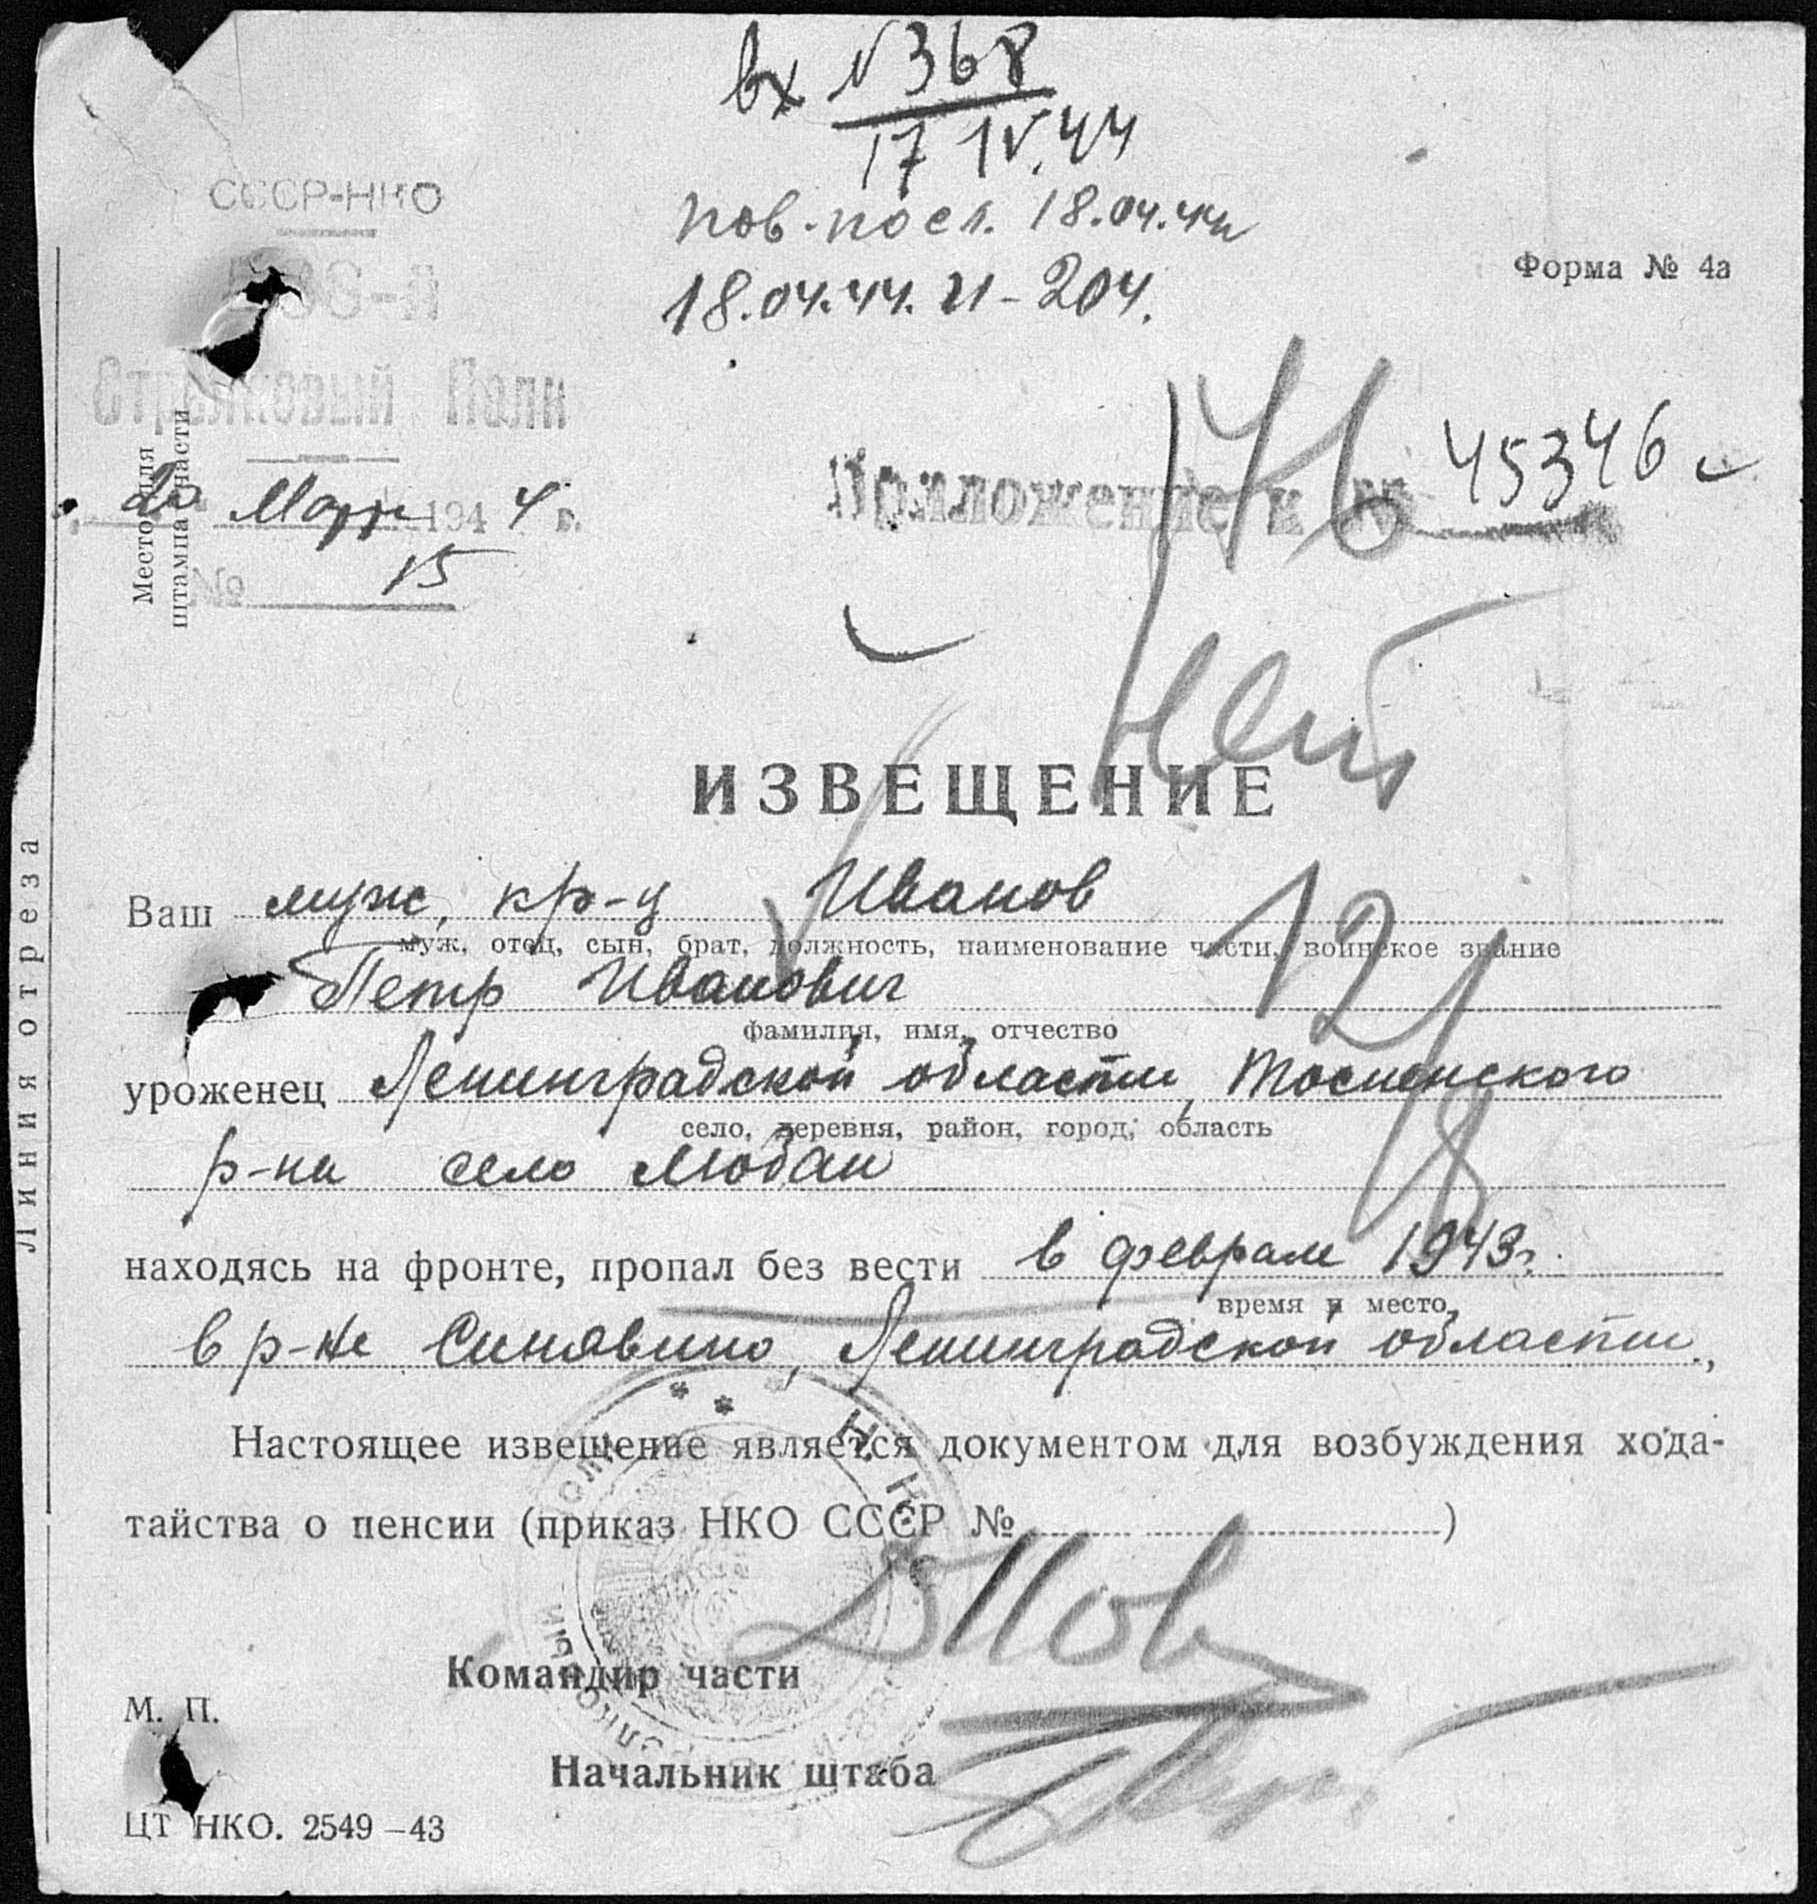 вх №368
17 IV.44
пов. посл. 18.04.44
18.04.44. И-204.
СССР-НКО
Форма № 4а
Стрелковый Полк
Место для
штампа части
20 Март 1944 г.
№ 15
Приложение к № 45346
нет
ИЗВЕЩЕНИЕ
Ваш муж, кр-ц Иванов
муж, отец, сын, брат, должность, наименование части, воинское звание
Петр Иванович
фамилия, имя, отчество
12
уроженец Ленинградской области, Тосненского
село, деревня, район, город, область
р-на село Любан
находясь на фронте, пропал без вести в феврале 1943г.
время и место
в р-не Синявино, Ленинградской области,
Настоящее извещение является документом для возбуждения хода-
тайства о пенсии (приказ НКО СССР № )
Командир части
М. П.
Начальник штаба
ЦТ НКО. 2549-43
Линия отреза